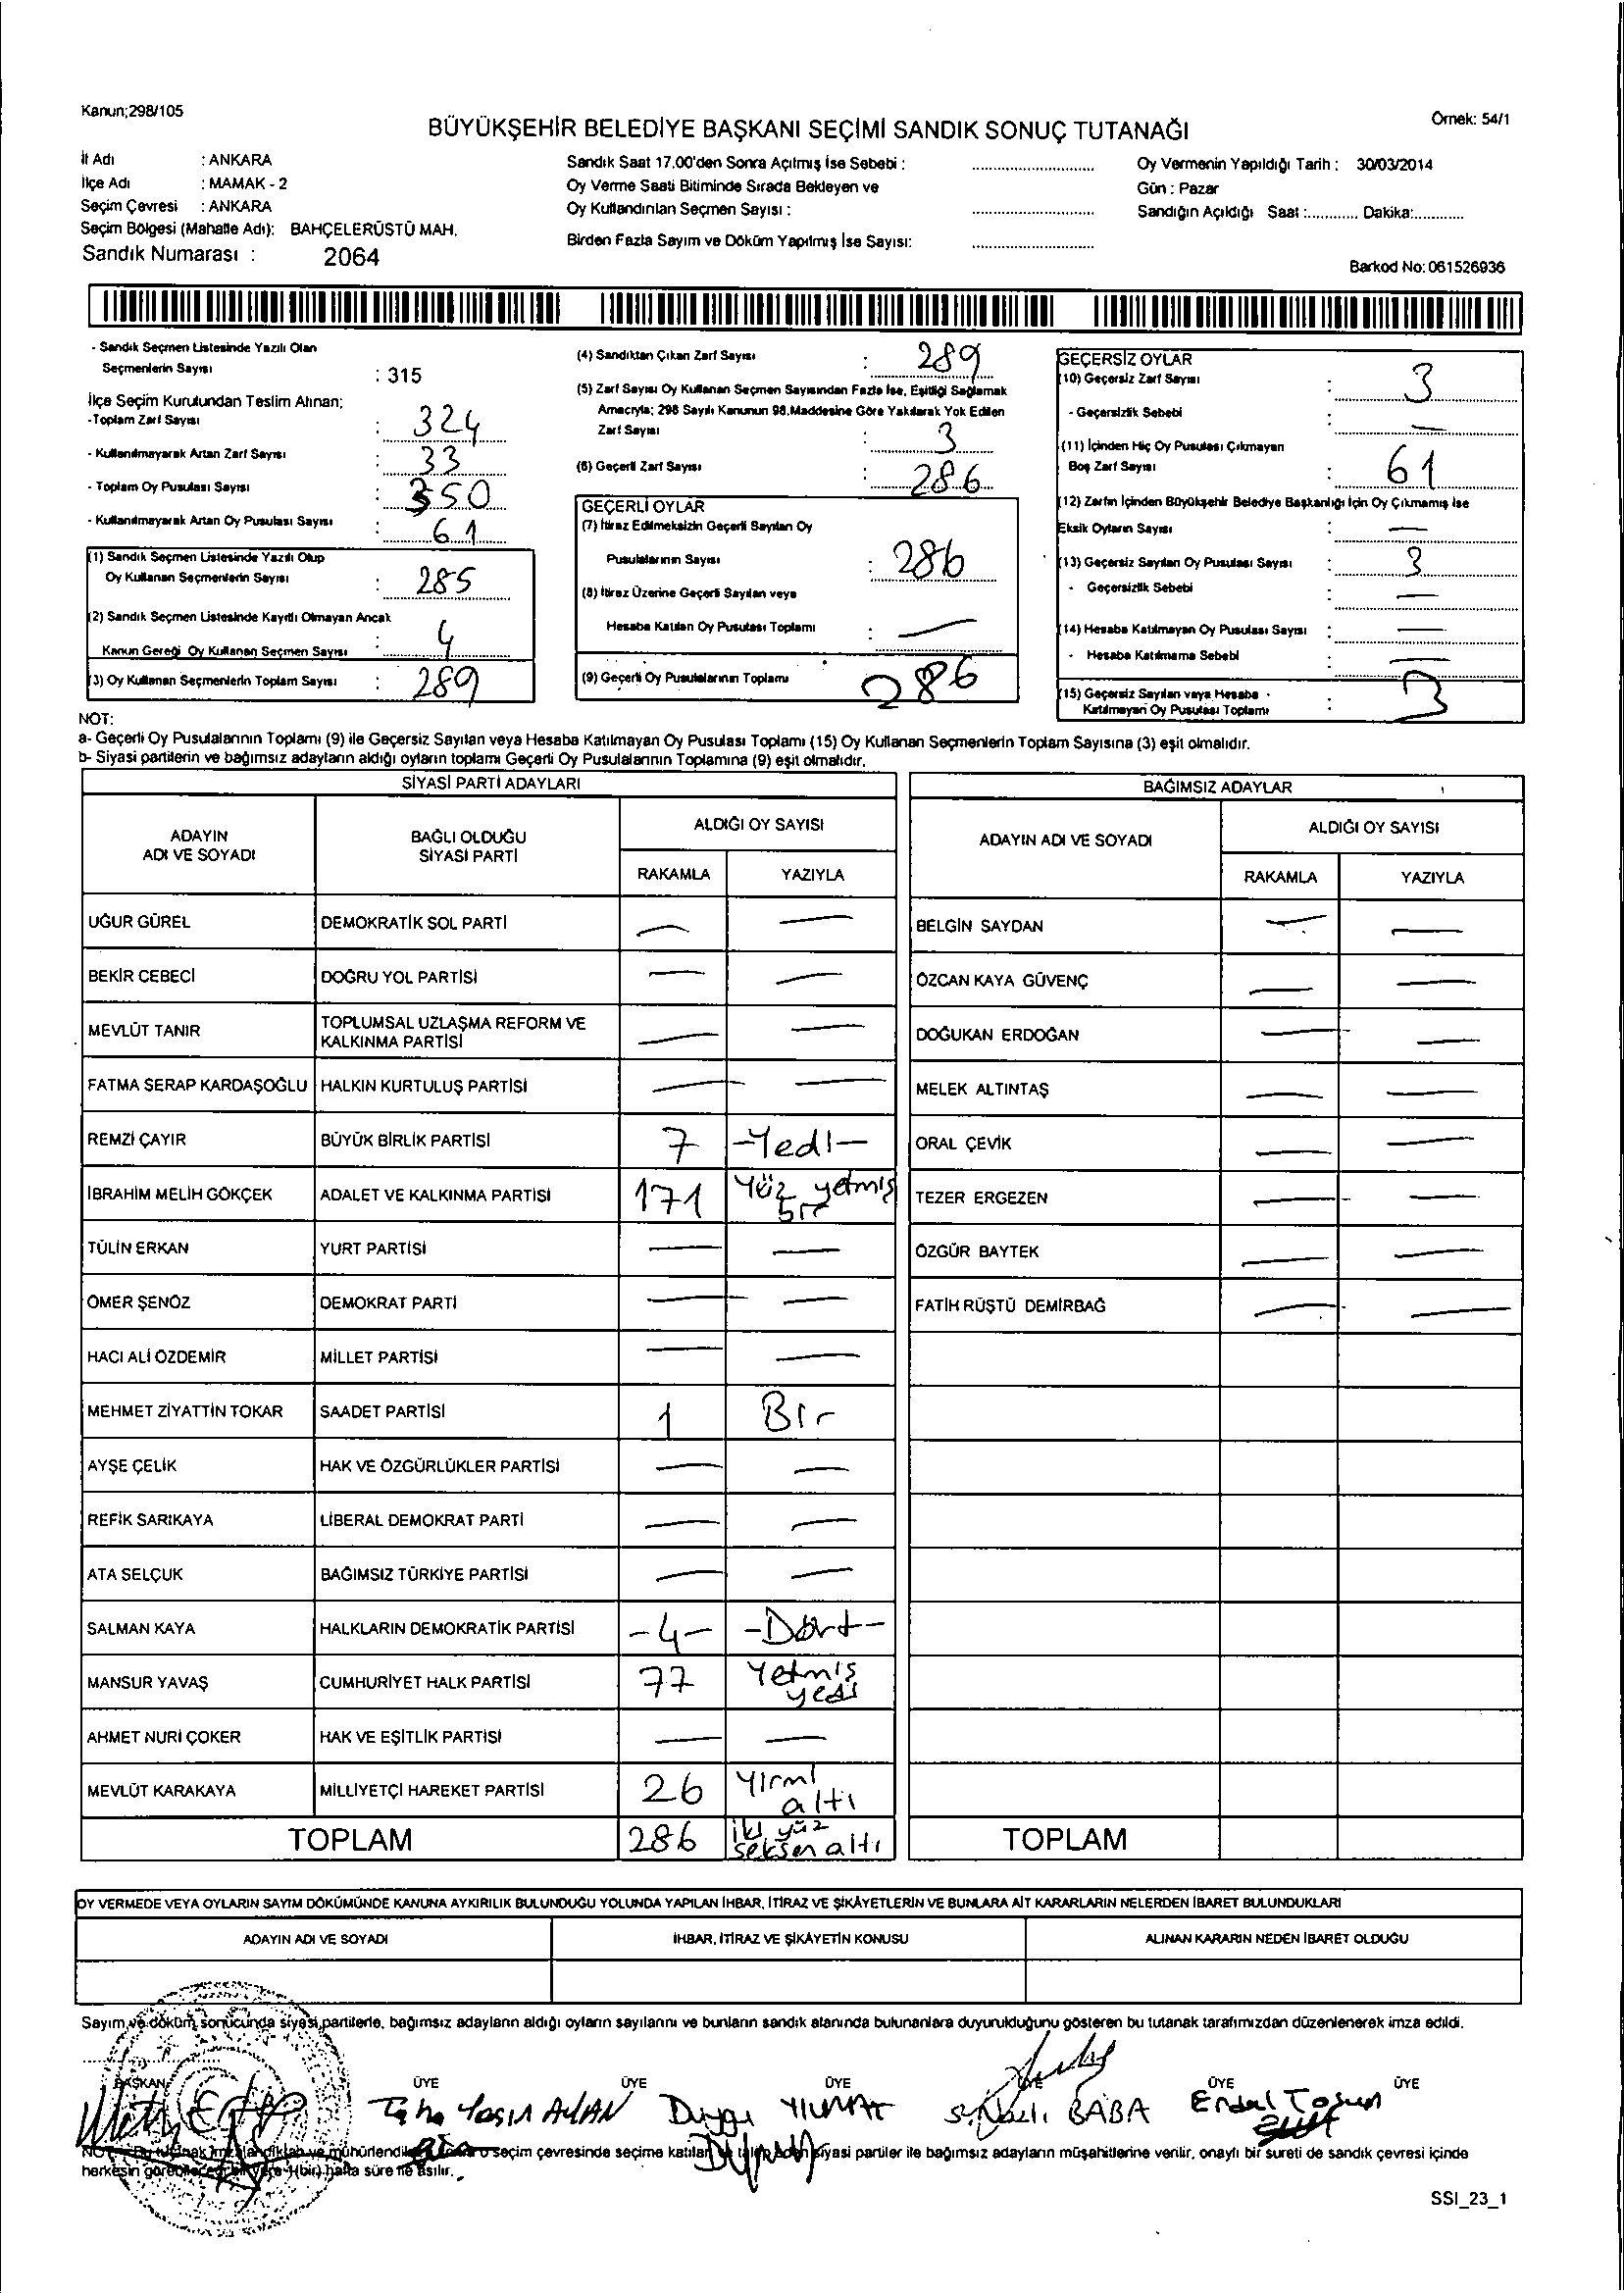 Kanun;298/105
Örnek: 54/1
BÜYÜKŞEHİR BELEDİYE BAŞKANI SEÇİMİ SANDIK SONUÇ TUTANAĞI
İl Adı : ANKARA
İlçe Adı : MAMAK - 2
Seçim Çevresi : ANKARA
Seçim Bölgesi (Mahalle Adı): BAHÇELERÜSTÜ MAH.
Sandık Numarası : 2064
Sandık Saat 17.00'den Sonra Açılmış İse Sebebi :
Oy Verme Saati Bitiminde Sırada Bekleyen ve
Oy Kullandırılan Seçmen Sayısı :
Birden Fazla Sayım ve Döküm Yapılmış İse Sayısı:
Oy Vermenin Yapıldığı Tarih : 30/03/2014
Gün : Pazar
Sandığın Açıldığı Saat :............ Dakika:............
Barkod No: 061526936
- Sandık Seçmen Listesinde Yazılı Olan
Seçmenlerin Sayısı : 315
İlçe Seçim Kurulundan Teslim Alınan;
-Toplam Zarf Sayısı : 324
- Kullanılmayarak Artan Zarf Sayısı : 33
- Toplam Oy Pusulası Sayısı : 350
- Kullanılmayarak Artan Oy Pusulası Sayısı : 61
(1) Sandık Seçmen Listesinde Yazılı Olup
Oy Kullanan Seçmenlerin Sayısı : 285
(2) Sandık Seçmen Listesinde Kayıtlı Olmayan Ancak
Kanun Gereği Oy Kullanan Seçmen Sayısı : 4
(3) Oy Kullanan Seçmenlerin Toplam Sayısı : 289
(4) Sandıktan Çıkan Zarf Sayısı : 289
(5) Zarf Sayısı Oy Kullanan Seçmen Sayısından Fazla İse, Eşitliği Sağlamak
Amacıyla; 298 Sayılı Kanunun 98.Maddesine Göre Yakılarak Yok Edilen
Zarf Sayısı : 3
(6) Geçerli Zarf Sayısı : 286
GEÇERLİ OYLAR
(7) İtiraz Edilmeksizin Geçerli Sayılan Oy
Pusulalarının Sayısı : 286
(8) İtiraz Üzerine Geçerli Sayılan veya
Hesaba Katılan Oy Pusulası Toplamı : —
(9) Geçerli Oy Pusulalarının Toplamı : 286
GEÇERSİZ OYLAR
(10) Geçersiz Zarf Sayısı : 3
- Geçersizlik Sebebi : —
(11) İçinden Hiç Oy Pusulası Çıkmayan
Boş Zarf Sayısı : 61
(12) Zarfın İçinden Büyükşehir Belediye Başkanlığı İçin Oy Çıkmamış İse
Eksik Oyların Sayısı : —
(13) Geçersiz Sayılan Oy Pusulası Sayısı : 3
- Geçersizlik Sebebi : —
(14) Hesaba Katılmayan Oy Pusulası Sayısı : —
- Hesaba Katılmama Sebebi : —
(15) Geçersiz Sayılan veya Hesaba
Katılmayan Oy Pusulası Toplamı : 3
NOT:
a- Geçerli Oy Pusulalarının Toplamı (9) ile Geçersiz Sayılan veya Hesaba Katılmayan Oy Pusulası Toplamı (15) Oy Kullanan Seçmenlerin Toplam Sayısına (3) eşit olmalıdır.
b- Siyasi partilerin ve bağımsız adayların aldığı oyların toplamı Geçerli Oy Pusulalarının Toplamına (9) eşit olmalıdır.
SİYASİ PARTİ ADAYLARI
ADAYIN ADI VE SOYADI BAĞLI OLDUĞU SİYASİ PARTİ ALDIĞI OY SAYISI
RAKAMLA YAZIYLA
UĞUR GÜREL DEMOKRATİK SOL PARTİ — —
BEKİR CEBECİ DOĞRU YOL PARTİSİ — —
MEVLÜT TANIR TOPLUMSAL UZLAŞMA REFORM VE KALKINMA PARTİSİ — —
FATMA SERAP KARDAŞOĞLU HALKIN KURTULUŞ PARTİSİ — —
REMZİ ÇAYIR BÜYÜK BİRLİK PARTİSİ 7 -Yedi-
İBRAHİM MELİH GÖKÇEK ADALET VE KALKINMA PARTİSİ 171 Yüz yetmiş bir
TÜLİN ERKAN YURT PARTİSİ — —
ÖMER ŞENÖZ DEMOKRAT PARTİ — —
HACI ALİ ÖZDEMİR MİLLET PARTİSİ — —
MEHMET ZİYATTİN TOKAR SAADET PARTİSİ 1 Bir
AYŞE ÇELİK HAK VE ÖZGÜRLÜKLER PARTİSİ — —
REFİK SARIKAYA LİBERAL DEMOKRAT PARTİ — —
ATA SELÇUK BAĞIMSIZ TÜRKİYE PARTİSİ — —
SALMAN KAYA HALKLARIN DEMOKRATİK PARTİSİ -4- -Dört-
MANSUR YAVAŞ CUMHURİYET HALK PARTİSİ 77 Yetmiş yedi
AHMET NURİ ÇOKER HAK VE EŞİTLİK PARTİSİ — —
MEVLÜT KARAKAYA MİLLİYETÇİ HAREKET PARTİSİ 26 Yirmi altı
TOPLAM 286 iki yüz seksen altı
BAĞIMSIZ ADAYLAR
ADAYIN ADI VE SOYADI ALDIĞI OY SAYISI
RAKAMLA YAZIYLA
BELGİN SAYDAN — —
ÖZCAN KAYA GÜVENÇ — —
DOĞUKAN ERDOĞAN — —
MELEK ALTINTAŞ — —
ORAL ÇEVİK — —
TEZER ERGEZEN — —
ÖZGÜR BAYTEK — —
FATİH RÜŞTÜ DEMİRBAĞ — —
TOPLAM
OY VERMEDE VEYA OYLARIN SAYIM DÖKÜMÜNDE KANUNA AYKIRILIK BULUNDUĞU YOLUNDA YAPILAN İHBAR, İTİRAZ VE ŞİKÂYETLERİN VE BUNLARA AİT KARARLARIN NELERDEN İBARET BULUNDUKLARI
ADAYIN ADI VE SOYADI İHBAR, İTİRAZ VE ŞİKÂYETİN KONUSU ALINAN KARARIN NEDEN İBARET OLDUĞU
Sayım ve döküm sonucunda siyasi partilerle, bağımsız adayların aldığı oyların sayılarını ve bunların sandık alanında bulunanlara duyurulduğunu gösteren bu tutanak tarafımızdan düzenlenerek imza edildi.
BAŞKAN ÜYE ÜYE ÜYE ÜYE ÜYE
Taha Yasin AYHAN Duygu YILMAZ BABA Erdal Tosun
seçim çevresinde seçime katılan siyasi partiler ile bağımsız adayların müşahitlerine verilir, onaylı bir sureti de sandık çevresi içinde
herkesin (bir) hafta süre ile asılır.
SSI_23_1